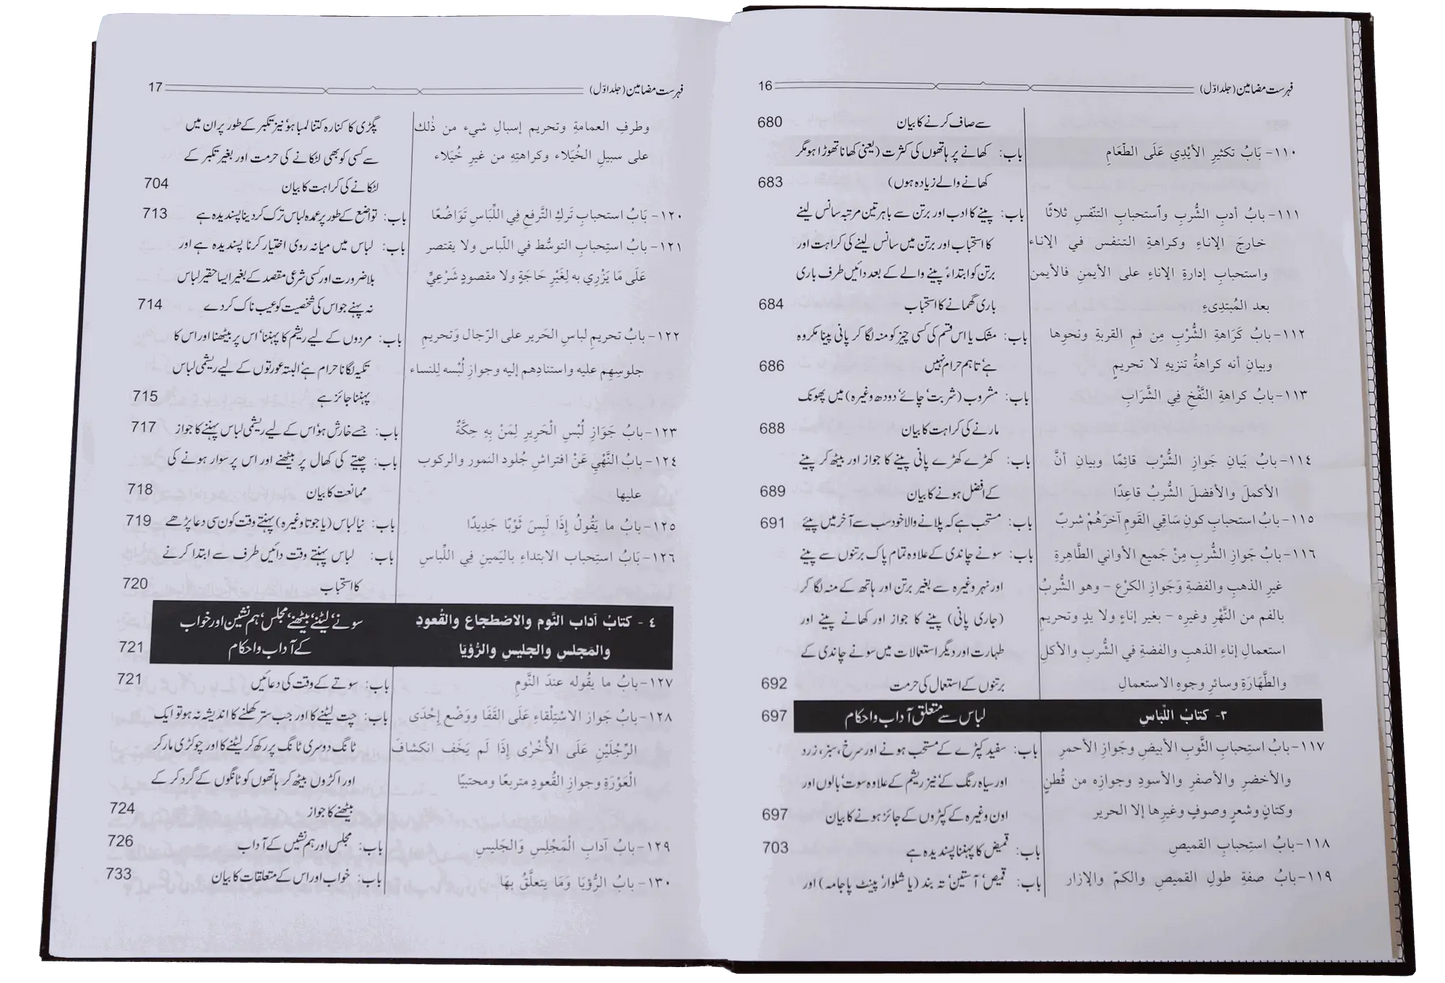 فہرست مضامین (جلد اوّل) 16
سے صاف کرنے کا بیان 680
١١٠- بَابُ تكثيرِ الأيْدِي عَلَى الطَّعَامِ باب: کھانے پر ہاتھوں کی کثرت (یعنی کھانا تھوڑا ہو مگر
کھانے والے زیادہ ہوں) 683
١١١- بابُ أدبِ الشُّربِ واستحبابِ التنّفسِ ثلاثًا باب: پینے کا ادب اور برتن سے باہر تین مرتبہ سانس لینے
خارجَ الإناءِ وكراهةِ التنفسِ في الإناءِ کا استحباب اور برتن میں سانس لینے کی کراہت اور
واستحبابِ إدارةِ الإناءِ على الأيمنِ فالأيمنِ برتن کو ابتداءً پینے والے کے بعد دائیں طرف باری
بعد المُبتدِيءِ باری گھمانے کا استحباب 684
١١٢- بابُ كَرَاهةِ الشُّرْبِ مِن فمِ القربةِ ونحوِها باب: مشک یا اس قسم کی کسی چیز کو منہ لگا کر پانی پینا مکروہ
وبيانِ أنه كراهةُ تنزيهٍ لا تحريمٍ ہے، تاہم حرام نہیں 686
١١٣- بابُ كراهةِ النَّفْخِ فِي الشَّرَابِ باب: مشروب (شربت، چائے، دودھ وغیرہ) میں پھونک
مارنے کی کراہت کا بیان 688
١١٤- بابُ بَيَانِ جَوازِ الشُّرْبِ قائِمًا وبيانِ أنَّ باب: کھڑے کھڑے پانی پینے کا جواز اور بیٹھ کر پینے
الأكملَ والأفضلَ الشُّربُ قاعِدًا کے افضل ہونے کا بیان 689
١١٥- بابُ استحبابِ كونِ سَاقِي القَومِ آخرَهُمْ شربً باب: مستحب ہے کہ پلانے والا خود سب سے آخر میں پیئے 691
١١٦- بابُ جَوازِ الشُّربِ مِنْ جَميعِ الأواني الطَّاهِرةِ باب: سونے چاندی کے علاوہ تمام پاک برتنوں سے پینے
غيرِ الذهبِ والفضةِ وَجَوازِ الكرْعِ – وهو الشُّربُ اور نہر وغیرہ سے بغیر برتن اور ہاتھ کے منہ لگا کر
بالفمِ من النَّهْرِ وغيرِه – بغيرِ إناءٍ ولا يدٍ وتحريمِ (جاری پانی) پینے کا جواز اور کھانے پینے اور
استعمالِ إناءِ الذهبِ والفضةِ في الشُّربِ والأكلِ طہارت اور دیگر استعمالات میں سونے چاندی کے
والطَّهَارَةِ وسائرِ وجوهِ الاستعمالِ برتنوں کے استعمال کی حرمت 692
٣- كتابُ اللّبَاسِ لباس سے متعلق آداب و احکام 697
١١٧- بابُ استِحبابِ الثَّوبِ الأبيضِ وجَوازِ الأحمرِ باب: سفید کپڑے کے مستحب ہونے اور سرخ، سبز، زرد
والأخضرِ والأصفرِ والأسودِ وجوازِه من قُطنٍ اور سیاہ رنگ کے، نیز ریشم کے علاوہ سوت، بالوں اور
وكتانٍ وشعرٍ وصوفٍ وغيرِها إلا الحرير اون وغیرہ کے کپڑوں کے جائز ہونے کا بیان 697
١١٨- بابُ استِحبابِ القميصِ باب: قمیص کا پہننا پسندیدہ ہے 703
١١٩- بابُ صفةِ طولِ القميصِ والكمِّ والإزار باب: قمیص، آستین، تہ بند (یا شلوار، پینٹ پاجامہ) اور
فہرست مضامین (جلد اوّل) 17
وطرفِ العمامةِ وتحريمِ إسبالِ شيء من ذٰلك پگڑی کا کنارہ کتنا لمبا ہو، نیز تکبر کے طور پر ان میں
على سبيلِ الخُيَلاء وكراهتِهِ من غيرِ خُيَلاء سے کسی کو بھی لٹکانے کی حرمت اور بغیر تکبر کے
لٹکانے کی کراہت کا بیان 704
١٢٠- بَابُ استحبابِ تَركِ التَّرفعِ فِي اللِّبَاسِ تَوَاضُعًا باب: تواضع کے طور پر عمدہ لباس ترک کر دینا پسندیدہ ہے 713
١٢١- بابُ استِحبابِ التوسُّط في اللّباس ولا يقتصر باب: لباس میں میانہ روی اختیار کرنا پسندیدہ ہے اور
عَلَى مَا يَزْرِي به لِغَيْرِ حَاجَةٍ ولا مقصودٍ شَرْعِيٍّ بلا ضرورت اور کسی شرعی مقصد کے بغیر ایسا حقیر لباس
نہ پہنے جو اس کی شخصیت کو عیب ناک کر دے 714
١٢٢- بابُ تحريمِ لباسِ الحَرير على الرّجال وَتحريمِ باب: مردوں کے لیے ریشم کا پہننا، اس پر بیٹھنا اور اس کا
جلوسِهِم عليه واستنادِهم إليه وجوازِ لُبْسه لِلنساء تکیہ لگانا حرام ہے، البتہ عورتوں کے لیے ریشمی لباس
پہننا جائز ہے 715
١٢٣- بابُ جَوَازِ لُبْسِ الْحَرِيرِ لِمَنْ بِهِ حِكَّةٌ باب: جسے خارش ہو، اس کے لیے ریشمی لباس پہننے کا جواز 717
١٢٤- بابُ النَّهْي عَنْ افتراشِ جُلود النمور والركوب باب: چیتے کی کھال پر بیٹھنے اور اس پر سوار ہونے کی
عليها ممانعت کا بیان 718
١٢٥- بابُ ما يَقُولُ إِذَا لَبِسَ ثَوْبًا جَدِيدًا باب: نیا لباس (یا جوتا وغیرہ) پہنتے وقت کون سی دعا پڑھے 719
١٢٦- بَابُ استِحباب الابتداءِ باليَمينِ فِي اللِّباسِ باب: لباس پہنتے وقت دائیں طرف سے ابتدا کرنے
کا استحباب 720
٤ - كتابُ آداب النَّوم والاضطجاع والقُعودِ سونے، لیٹنے، بیٹھنے، مجلس، ہم نشین اور خواب
والمَجلسِ والجليسِ والرُّؤيَا کے آداب و احکام 721
١٢٧- بابُ ما يقُوله عِندَ النَّومِ باب: سوتے کے وقت کی دعائیں 721
١٢٨- بابُ جَوازِ الاسْتِلْقَاءِ عَلَى القَفَا ووَضْعِ إحْدَى باب: چت لیٹنے کا اور جب ستر کھلنے کا اندیشہ نہ ہو تو ایک
الرِّجْلَيْنِ عَلَى الأُخْرَى إِذَا لَم يَخَف انكشافَ ٹانگ دوسری ٹانگ پر رکھ کر لیٹنے کا اور چوکڑی مار کر
الْعَوْرَةِ وجوازِ القُعودِ متربعًا ومحتبيًا اور اکڑوں بیٹھ کر ہاتھوں کو ٹانگوں کے گرد کر کے
بیٹھنے کا جواز 724
١٢٩- بابُ آدابِ الْمَجْلِسِ وَالجَلِيسِ باب: مجلس اور ہم نشیں کے آداب 726
١٣٠- بابُ الرُّؤيَا وَمَا يتعلَّقُ بهَا باب: خواب اور اس کے متعلقات کا بیان 733